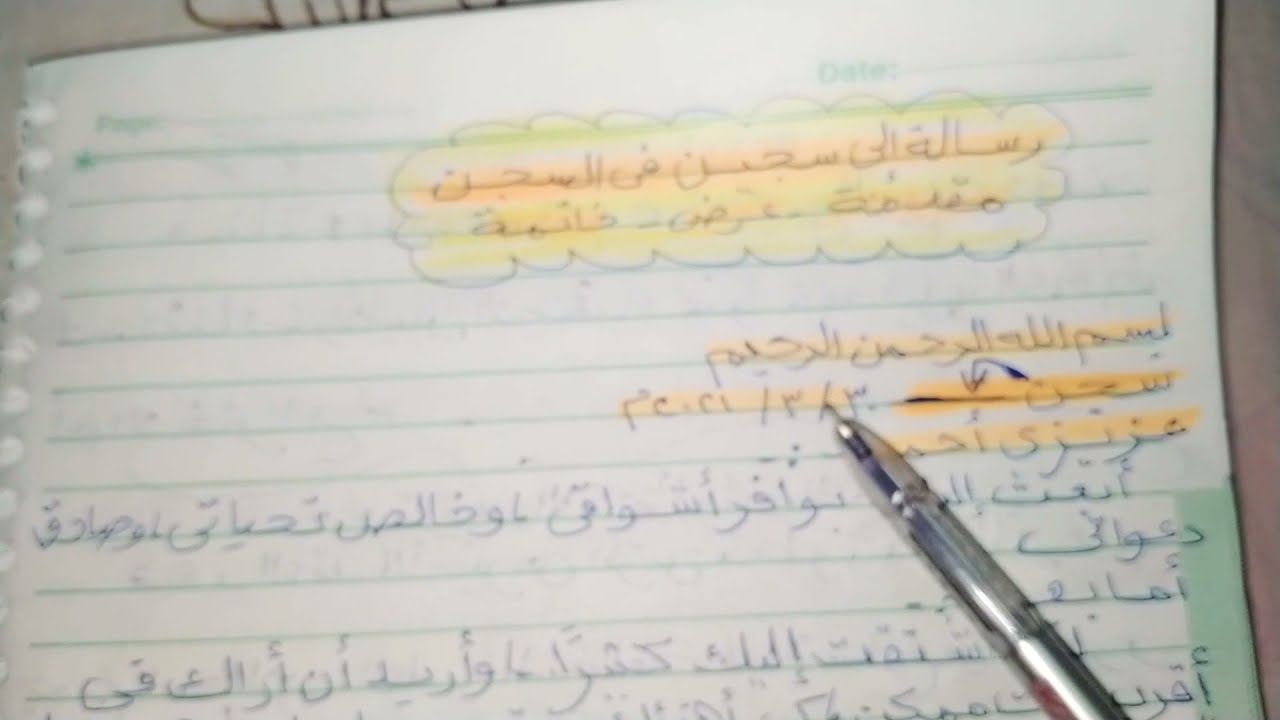 Date:
Page:
رسالة إلى سجين في السجن
مقدمة - عرض - خاتمة
بسم الله الرحمن الرحيم
سجن
٣٠ / ٣ / ٢٠٢١م
عزيزي أحمد
أبعث بوافر أشواقي، وخالص تحياتي، وصادق
دعواتي
أما بعد
اشتقت إليك كثيرًا، وأريد أن أراك في
أقرب ممكن